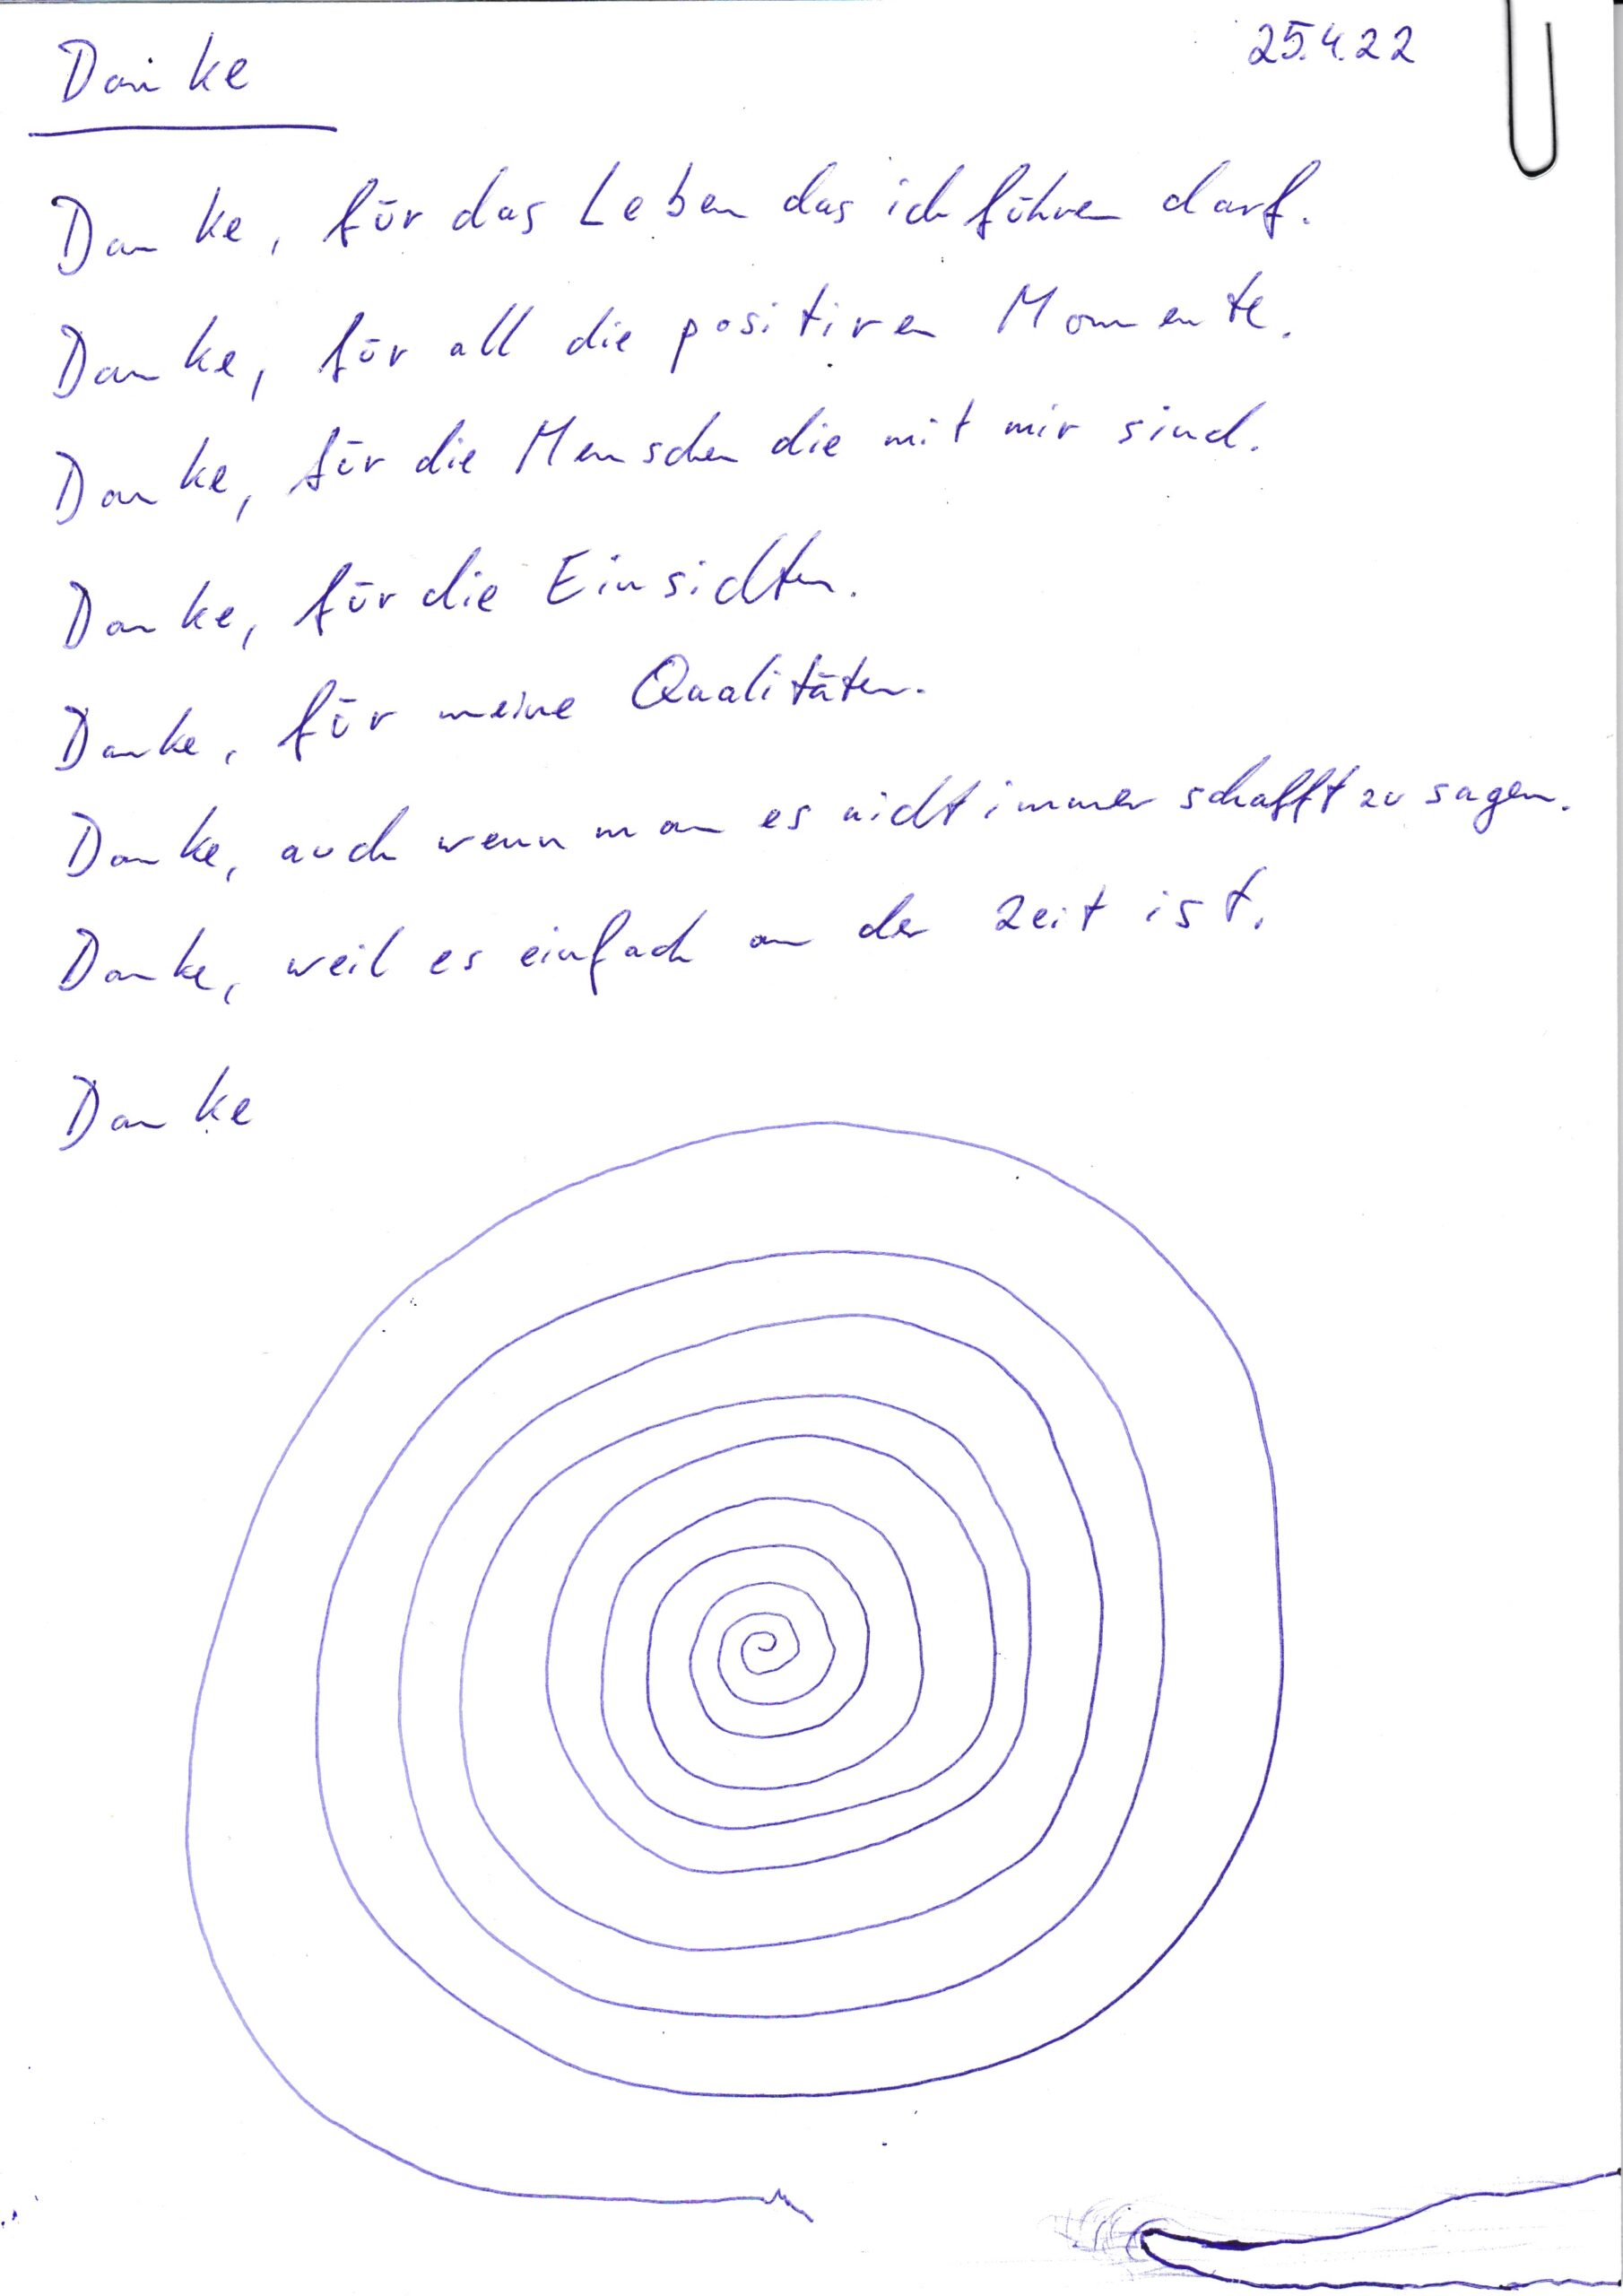 Danke
25.4.22
Danke, für das Leben das ich führen darf.
Danke, für all die positiven Momente.
Danke, für die Menschen die mit mir sind.
Danke, für die Einsichten.
Danke, für meine Qualitäten.
Danke, auch wenn man es nicht immer schafft zu sagen.
Danke, weil es einfach an der Zeit ist.
Danke